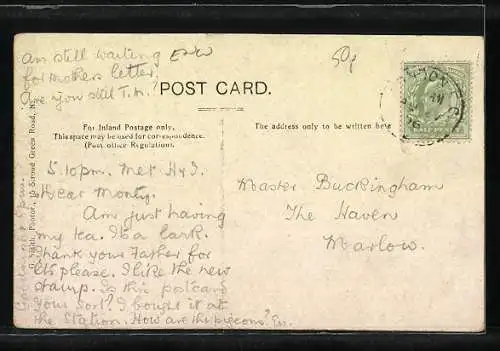 Am still waiting
for mothers letter.
Are you still T.
50p
POST CARD.
For Inland Postage only,
This space may be used for correspondence.
(Post office Regulation).
The address only to be written here
HALF PENNY
Stroud Green Road, N.
5.10pm. Met
Dear Monty.
Am just having
my tea. It's a lark.
Thank your Father for
please. I like the new
stamp. Is this postcard
your sort? I bought it at
the Station. How are the pigeons?
Master Buckingham
The Haven
Marlow.